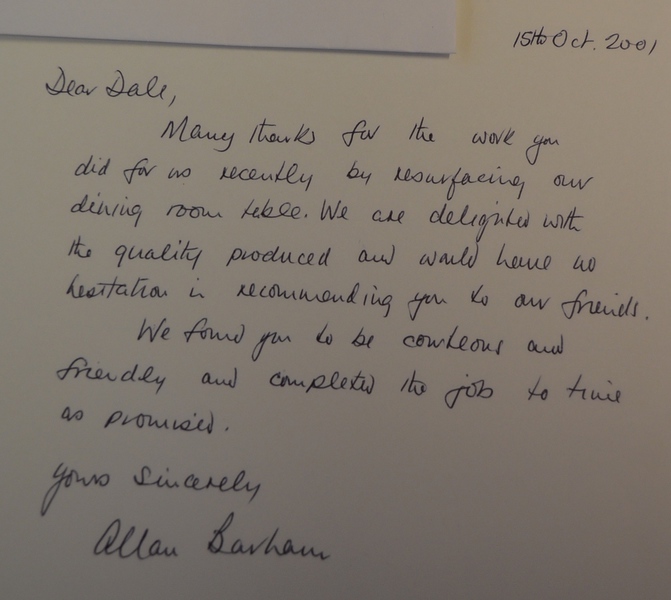 15th Oct. 2001
Dear Dale,
Many thanks for the work you
did for us recently by resurfacing our
dining room table. We are delighted with
the quality produced and would have no
hesitation in recommending you to our friends.
We found you to be courteous and
friendly and completed the job to time
as promised.
Yours Sincerely
Allan Barham